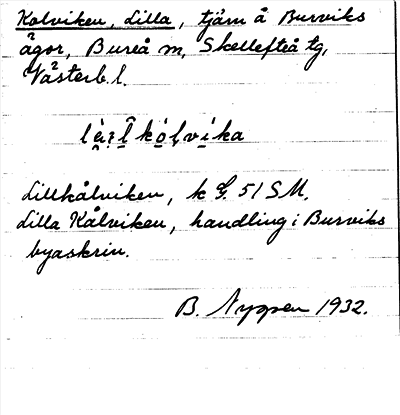 Kolviken, Lilla, tjärn å Burviks
ägor, Bureå m, Skellefteå tg,
Västerb. l.
kó̩lvika
Lillkålviken, k G. 51 SM.
Lilla Kålviken, handling i Burviks
byaskrin.
B. Nyppen 1932.